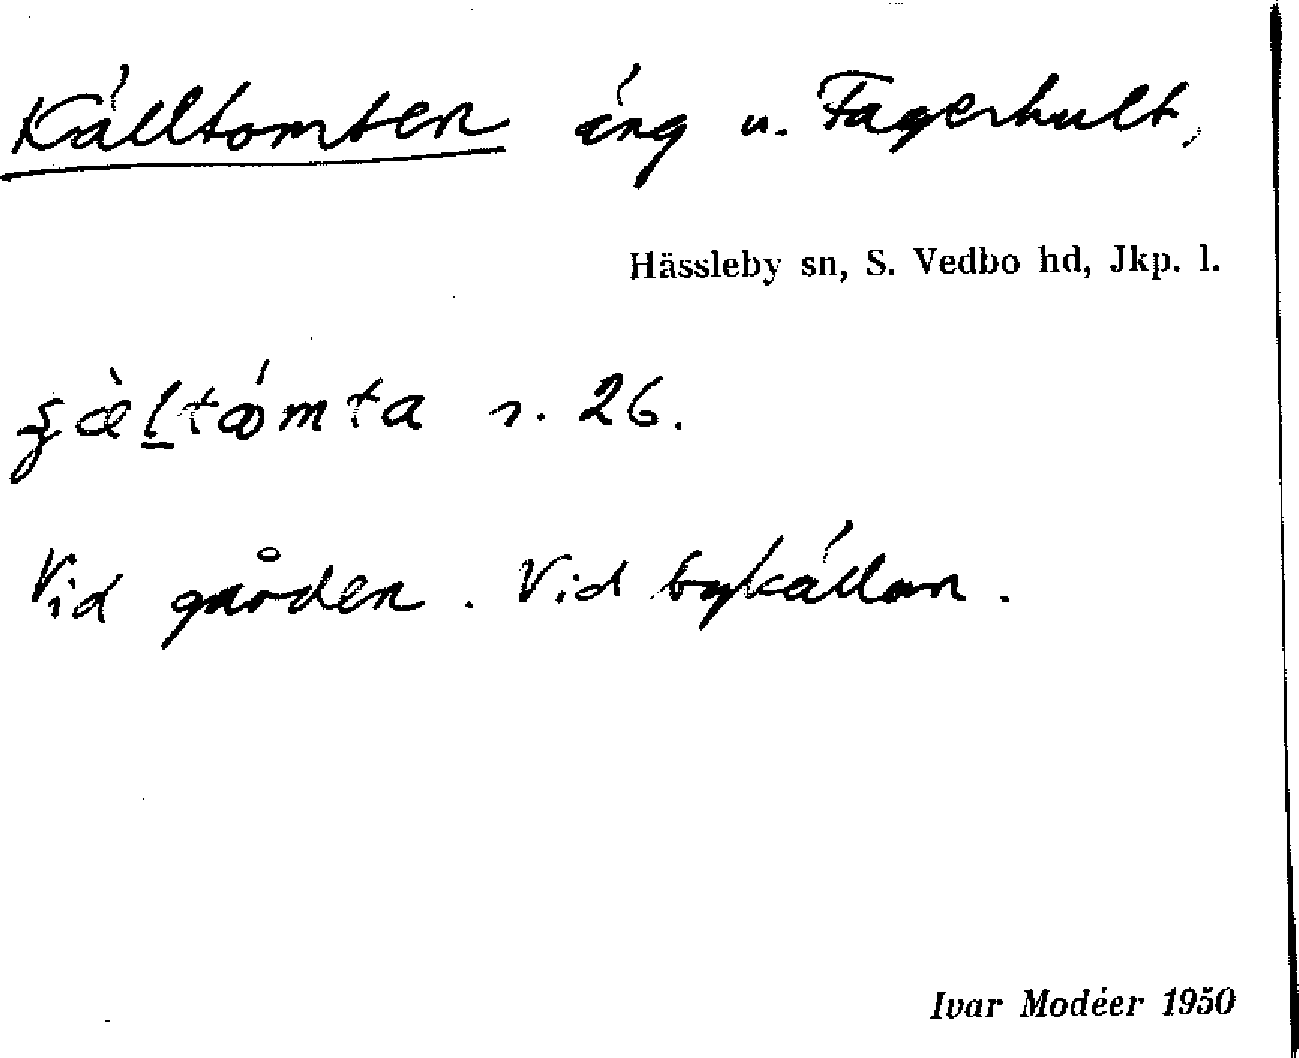 Källtomten äng u. Fagerhult,
Hässleby sn, S. Vedbo hd, Jkp. l.
s. 26.
Vid gården. Vid bykällan.
Ivar Modéer 1950